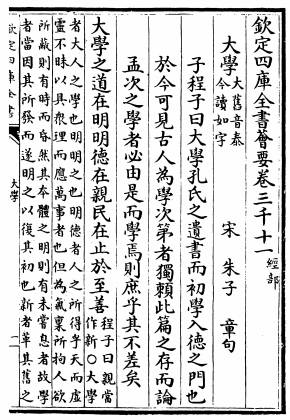 欽定四庫全書薈要卷三千十一 經部
大學 大舊音泰今讀如字
宋 朱子 章句
子程子曰大學孔氏之遺書而初學入德之門也
於今可見古人為學次第者獨賴此篇之存而論
孟次之學者必由是而學焉則庶乎其不差矣
大學之道在明明德在親民在止於至善 程子曰親當作新○大學
者大人之學也明明之也明德者人之所得乎天而虛
靈不昧以具衆理而應萬事者也但為氣稟所拘人欲
所蔽則有時而昏然其本體之明則有未嘗息者故學
者當因其所發而遂明之以復其初也新者革其舊之
欽定四庫全書
大學
一